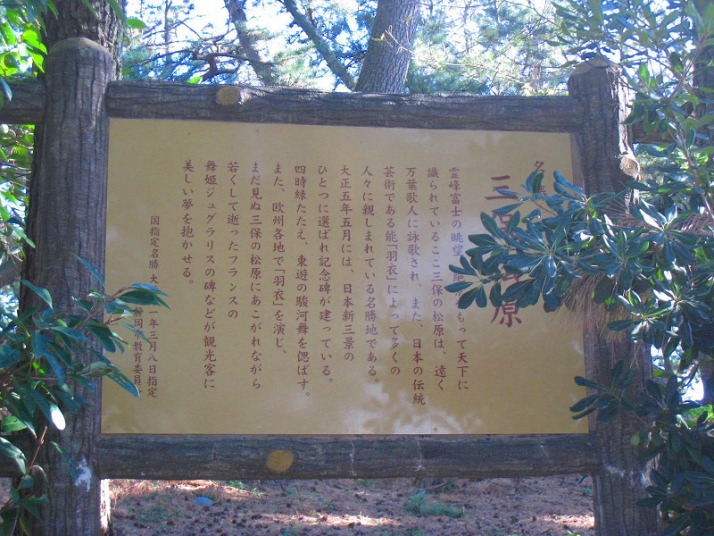 名
三 原
霊峰富士の眺望 もって天下に
識られているここ三保の松原は、遠く
万葉歌人に詠歌され、また、日本の伝統
芸術である能「羽衣」によって多くの
人々に親しまれている名勝地である。
大正五年五月には、日本新三景の
ひとつに選ばれ記念碑が建っている。
四時緑たたえ、東遊の駿河舞を偲ばす。
また、欧州各地で「羽衣」を演じ、
まだ見ぬ三保の松原にあこがれながら
若くして逝ったフランスの
舞姫ジュグラリスの碑などが観光客に
美しい夢を抱かせる。
国指定名勝 大 一年三月八日指定
岡 教育委員